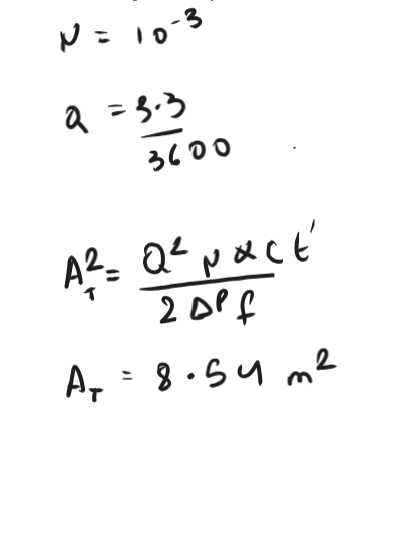 μ = 10⁻³
Q = 3.3
3600
A_T² = Q² μ α c t'
2 ΔP f
A_T = 8.54 m²